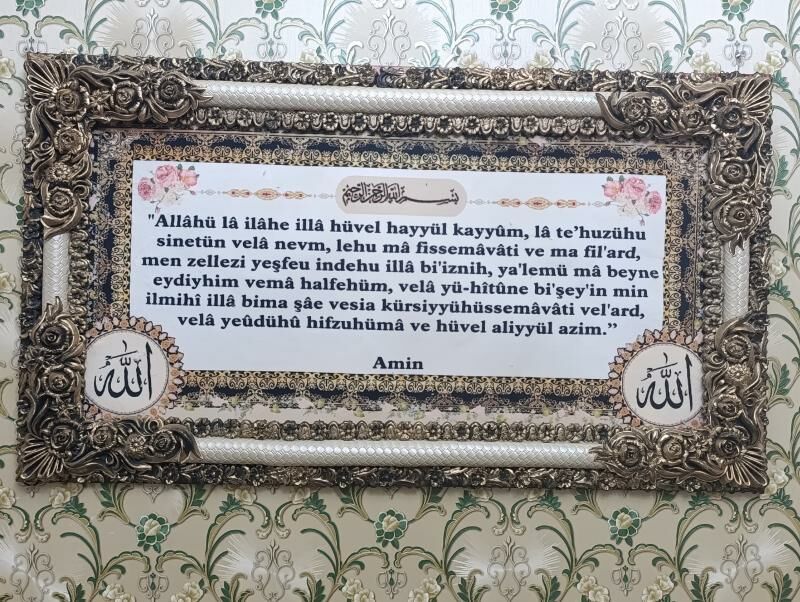 بسم الله الرحمن الرحيم
"Allâhü lâ ilâhe illâ hüvel hayyül kayyûm, lâ te'huzühu
sinetün velâ nevm, lehu mâ fissemâvâti ve ma fil'ard,
men zellezi yeşfeu indehu illâ bi'iznih, ya'lemü mâ beyne
eydiyhim vemâ halfehüm, velâ yü-hîtûne bi'şey'in min
ilmihî illâ bima şâe vesia kürsiyyühüssemâvâti vel'ard,
velâ yeûdühû hifzuhümâ ve hüvel aliyyül azim.”
Amin
الله
الله